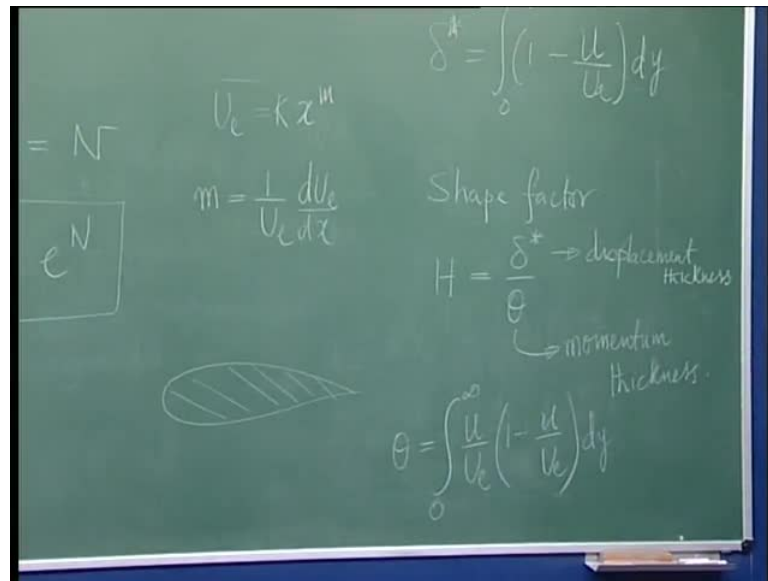 = N
e^N
U_e = K x^m
m = 1/U_e dU_e/dx
δ* = ∫_0 (1 - u/U_e) dy
Shape factor
H = δ*/θ → displacement thickness
→ momentum
thickness.
θ = ∫_0^∞ u/U_e (1 - u/U_e) dy